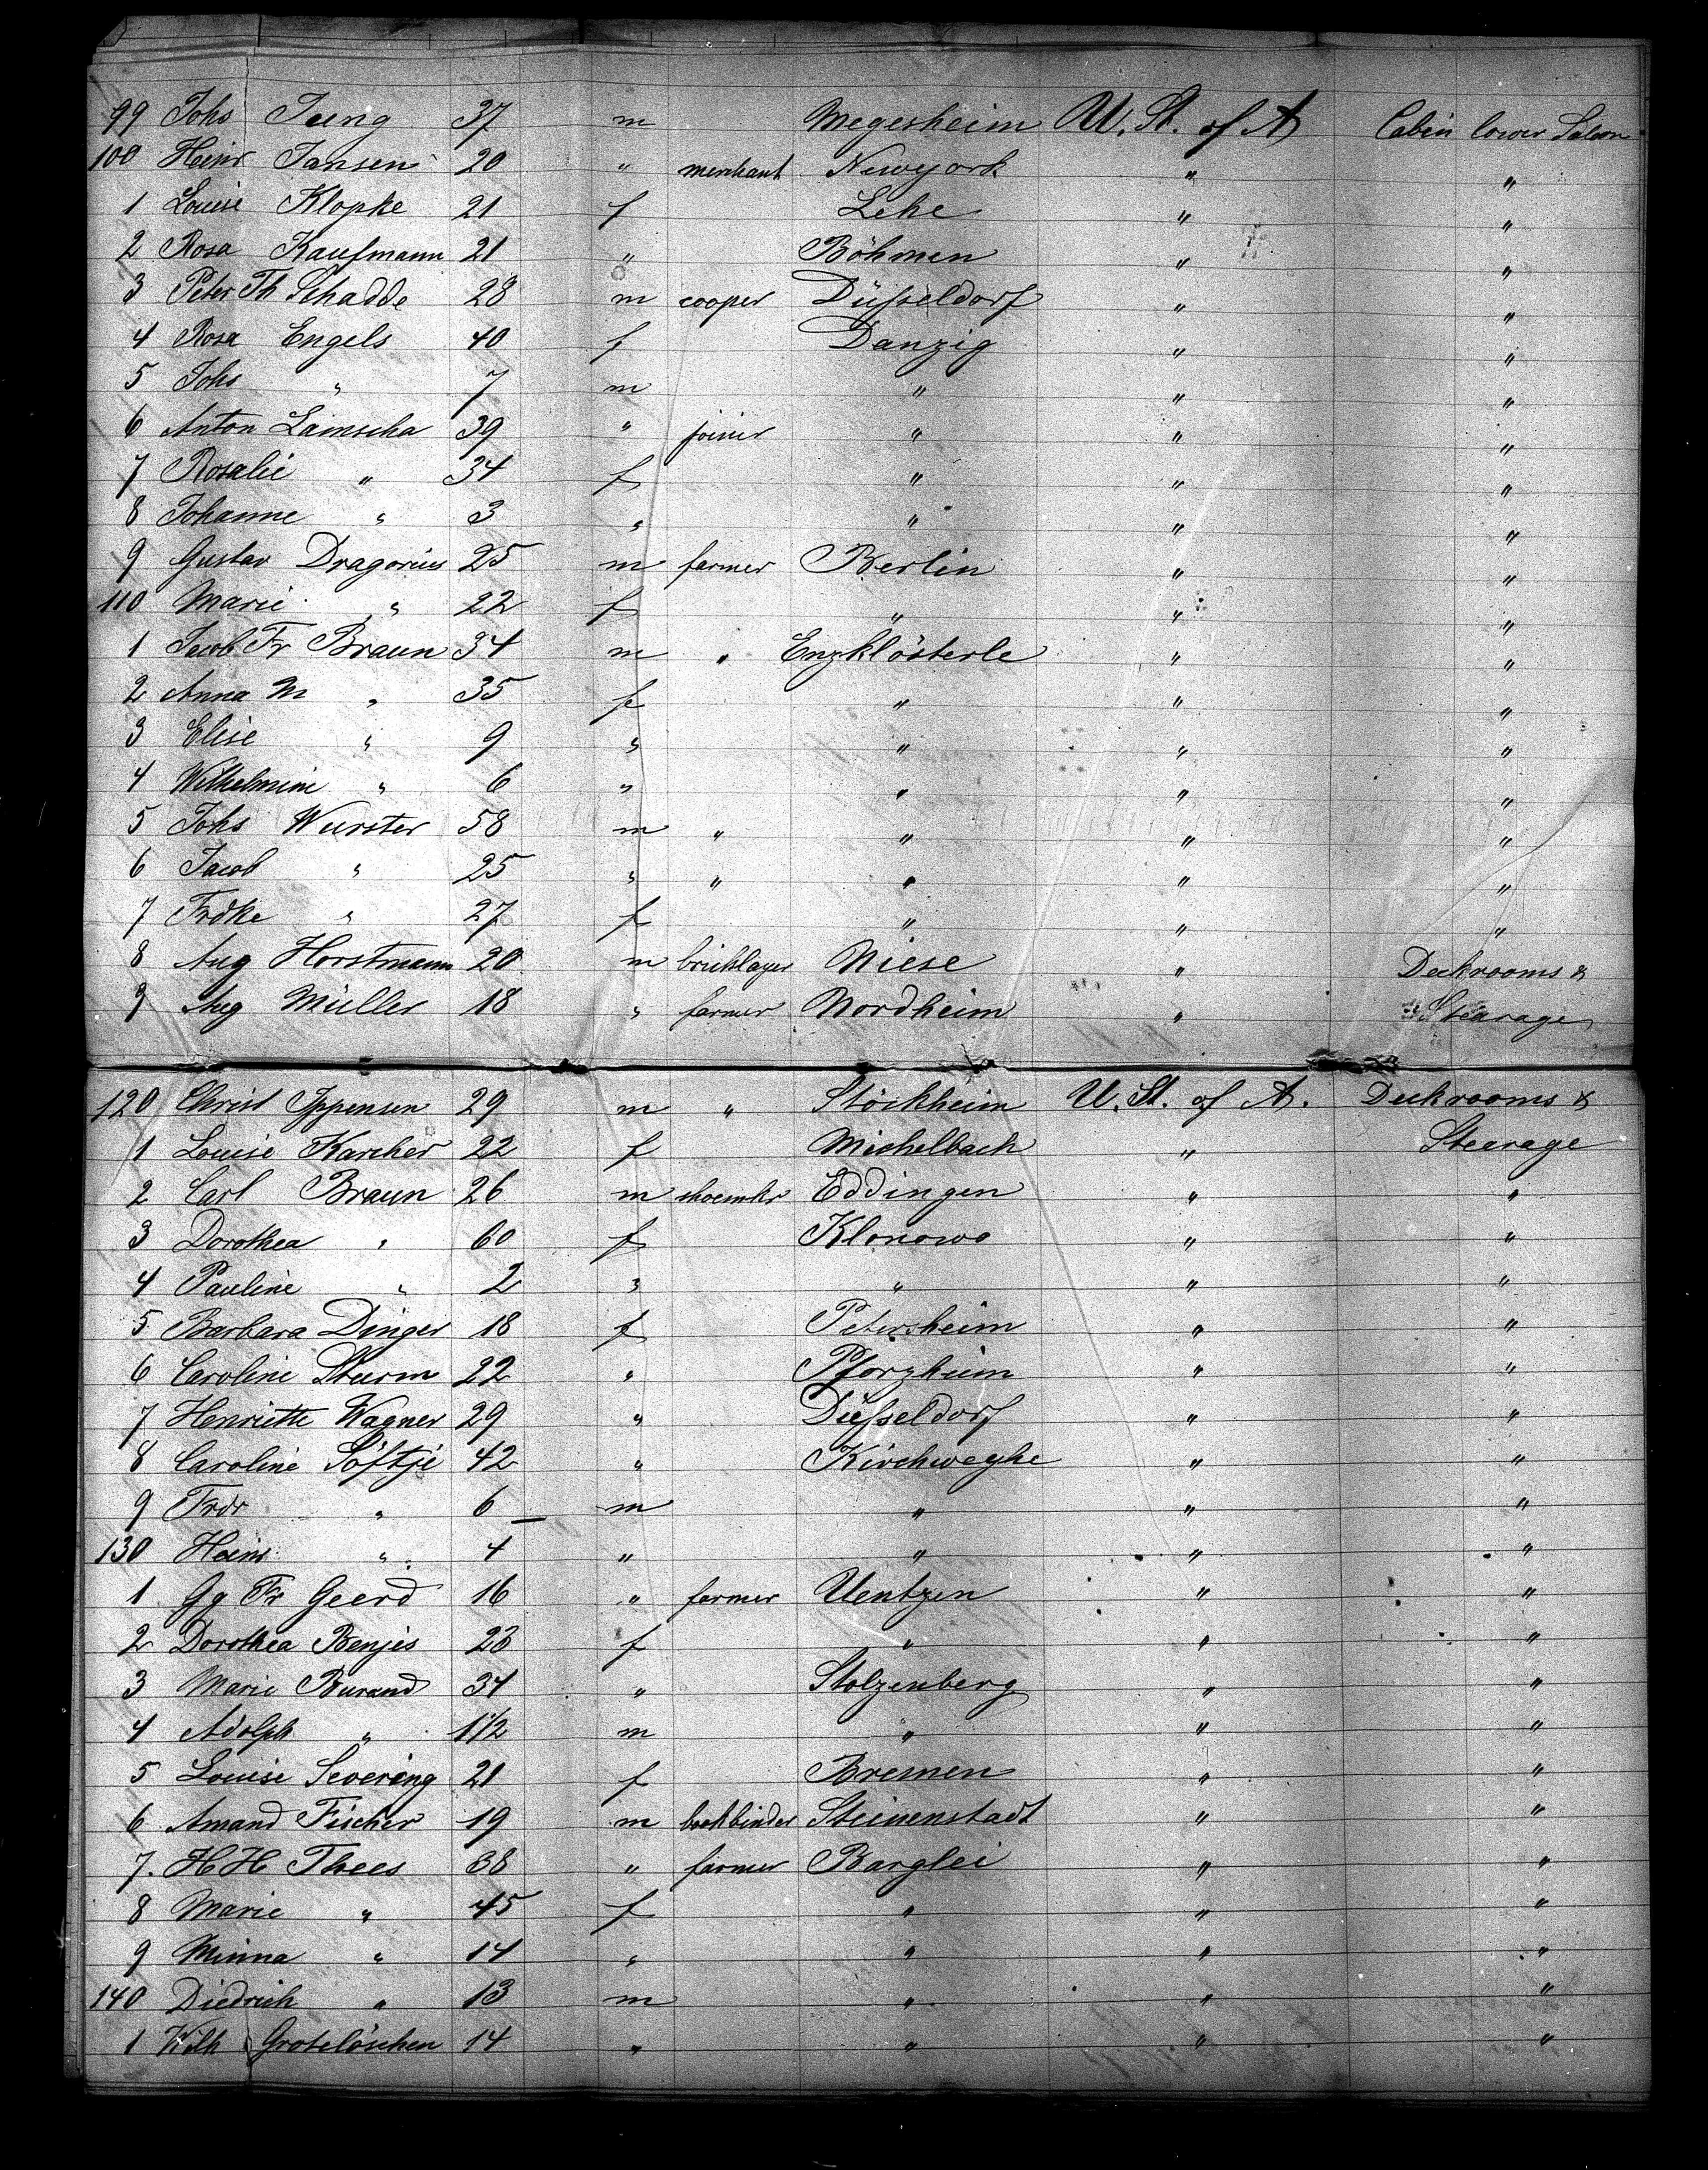 99 Johs Jung 37 m Megesheim U. St. of A Cabin lower Saloon
100 Heinr Jansen 20 " merchant Newyork " "
1 Louise Klopke 21 f Lehe " "
2 Rosa Kaufmann 21 " Böhmen " "
3 Peter Th Schadde 28 m cooper Düsseldorf " "
4 Rosa Engels 40 f Danzig " "
5 Johs " 7 m " " "
6 Anton Lainscha 39 " joiner " " "
7 Rosalie " 34 f " " "
8 Johanne " 3 " " " "
9 Gustav Dragorius 25 m farmer Berlin " "
110 Marie " 22 f " " "
1 Jacob Fr Braun 34 m " Enzklösterle " "
2 Anna M " 35 f " " "
3 Elise " 9 " " " "
4 Wilhelmine " 6 " " " "
5 Johs Wurster 58 m " " " "
6 Jacob " 25 " " " " "
7 Frdke " 27 f " " "
8 Aug Horstmann 20 m bricklayer Niese " Deckrooms &
9 Aug Müller 18 " farmer Nordheim " Stearage
120 Christ Ippensen 29 m " Stöckheim U. St. of A. Deckrooms &
1 Louise Karcher 22 f Michelbach " Stearage
2 Carl Braun 26 m shoemkr Eddingen " "
3 Dorothea " 60 f Klonowo " "
4 Pauline " 2 " " " "
5 Barbara Dinger 18 f Petersheim " "
6 Caroline Sturm 22 " Pforzheim " "
7 Henriette Wagner 29 " Düsseldorf " "
8 Caroline Söftje 42 " Kirchweyhe " "
9 Frdr " 6 m " " "
130 Heinr " 4 " " " "
1 Gg Fr Geerd 16 " farmer Uentzen " "
2 Dorothea Benjes 23 f " " "
3 Marie Burand 34 " Stolzenberg " "
4 Adolph " 1 1/2 m " " "
5 Louise Severing 21 f Bremen " "
6 Amand Fischer 19 m bookbinder Steinenstadt " "
7. H H Thees 38 " farmer Barglei " "
8 Marie " 45 f " " "
9 Minna " 14 " " " "
140 Diedrich " 13 m " " "
1 Wilh Groteloschen 14 " " " "